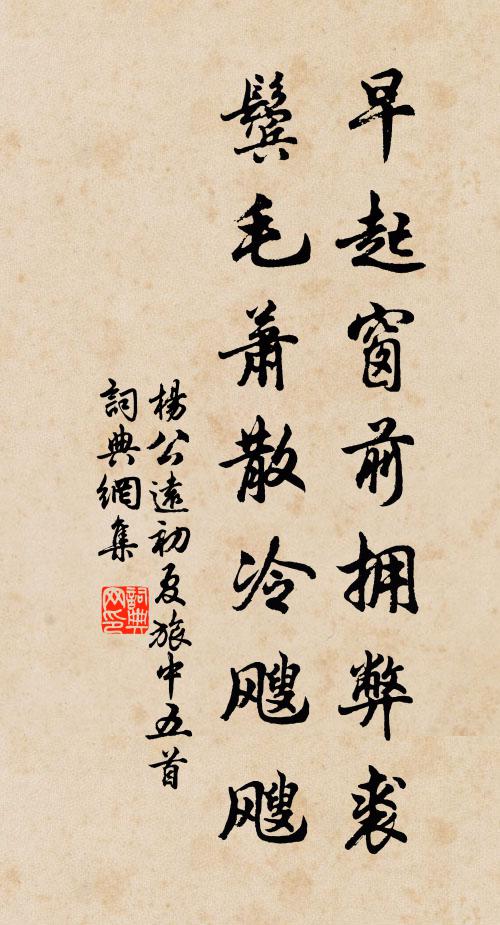 早起窗前拥弊裘
鬓毛萧散冷飕飕
楊公遠初夏旅中五首
詞典網集
詞典网印